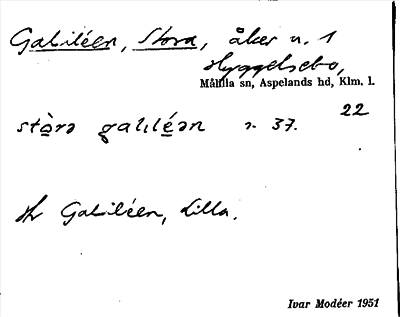 Galiléen, Stora, åker n. 1
Hyggelsebo,
Målilla sn, Aspelands hd, Klm. l.
22
stòra galıléən s. 37.
Jfr Galiléen, Lilla.
Ivar Modéer 1951